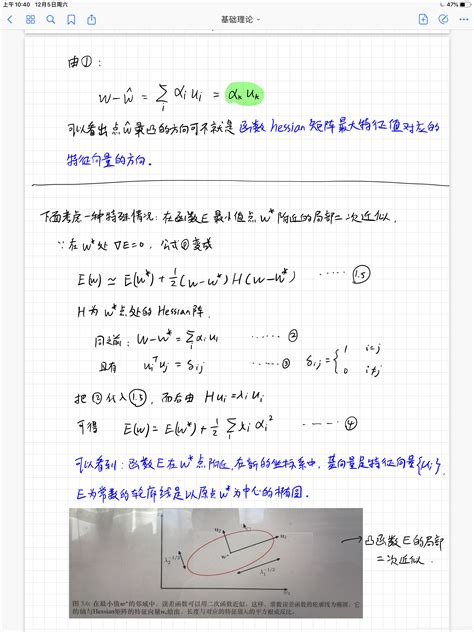 上午10:40 12月5日周六
47%
基础理论
由①:
w-ŵ = Σ_i α_i u_i = α_k u_k
可以看出点ŵ最凸的方向可不就是函数hessian矩阵最大特征值对应的
特征向量的方向.
下面考虑一种特殊情况:在函数E最小值点w*附近的局部二次近似.
∵在w*处 ∇E=0, 公式④变成
E(w) ≃ E(w*) + 1/2 (w-w*) H (w-w*) ······ (1.5)
H为w*点处的Hessian阵.
同之前: w-w* = Σ_i α_i u_i ······ ②
且有 u_i^T u_j = δ_ij ······ ③ δ_ij = { 1 i=j
0 i≠j
把②代入(1.5), 而后由 Hu_i=λ_i u_i
可得 E(w) = E(w*) + 1/2 Σ_i λ_i α_i^2 ······ ④
可以看到:函数E在w*点附近,在新的坐标系中,基向量是特征向量{u_i},
E为常数的轮廓线是以原点w*为中心的椭圆.
w₂
u₂
u₁
w*
λ₂^-1/2
λ₁^-1/2
w₁
→凸函数E的局部
二次近似.
图 3.6: 在最小值w*的邻域中, 误差函数可以用二次函数近似。这样, 常数误差函数的轮廓线为椭圆, 它
的轴与Hessian矩阵的特征向量u_i给出, 长度与对应的特征值λ_i的平方根成反比。